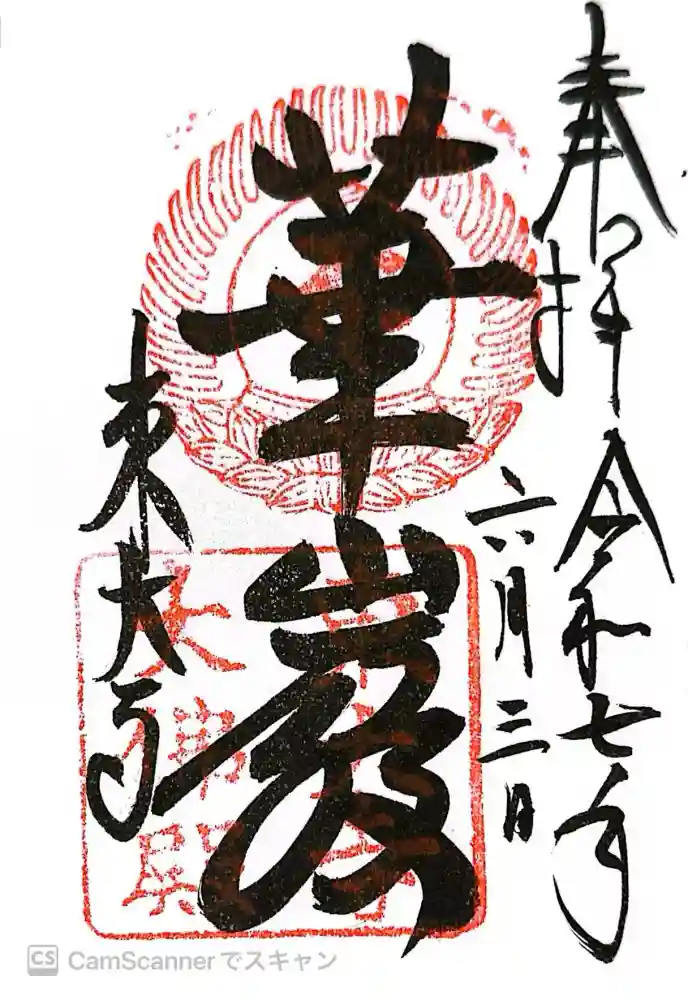 奉拝
令和七年
六月三日
華嚴
東大寺
大佛殿
CS CamScannerでスキャン